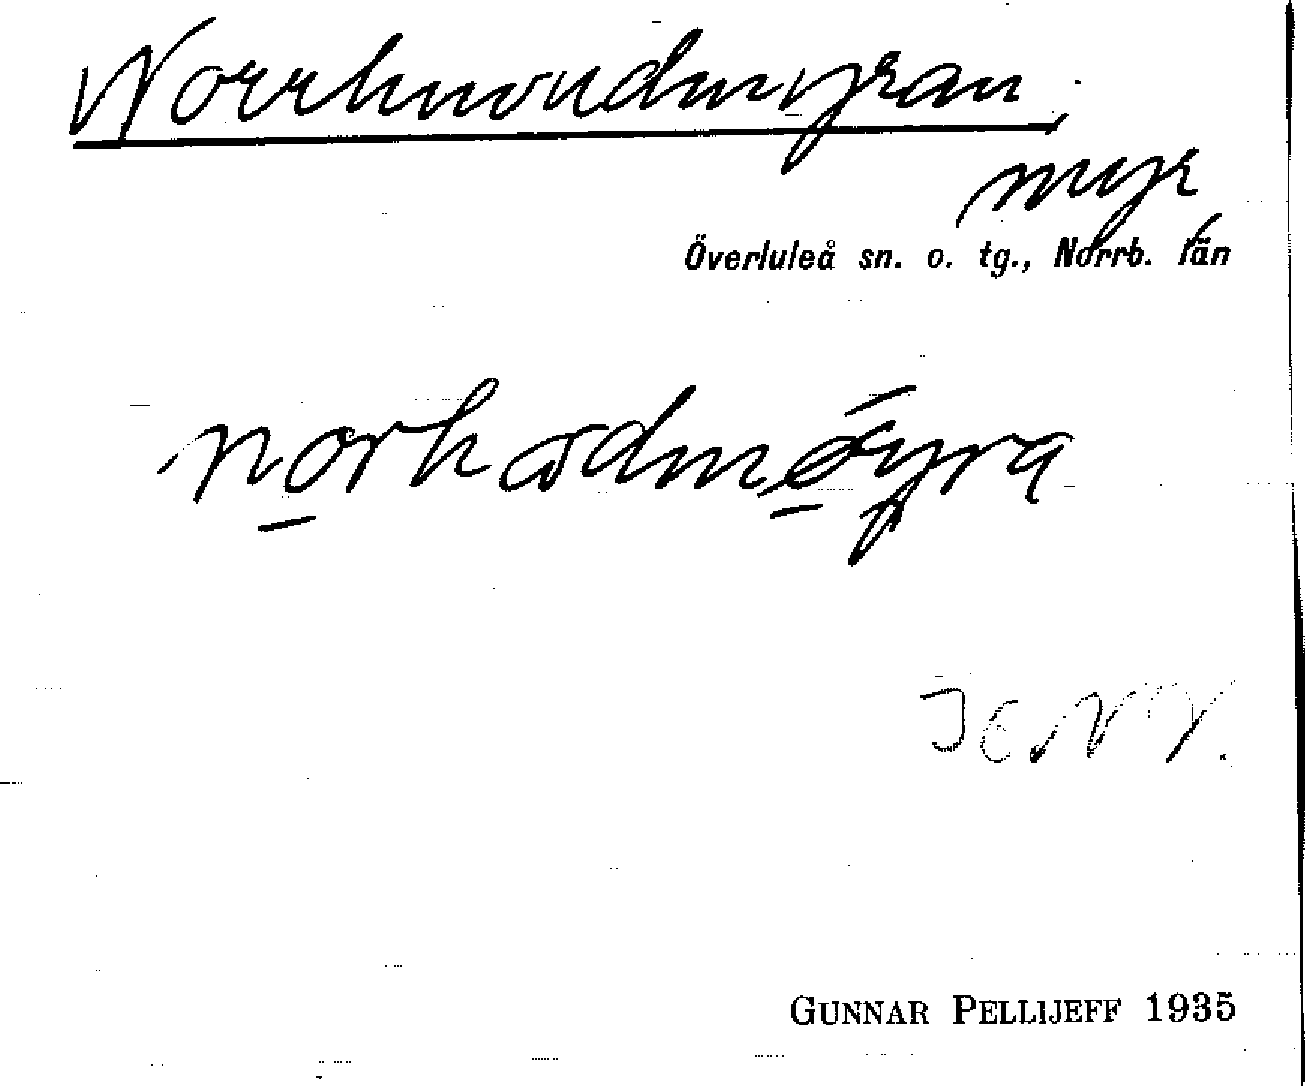 Norrhuvudmyran,
myr
Överluleå sn. o. tg., Norrb. län
norhωdmöyra
GUNNAR PELLIJEFF 1935